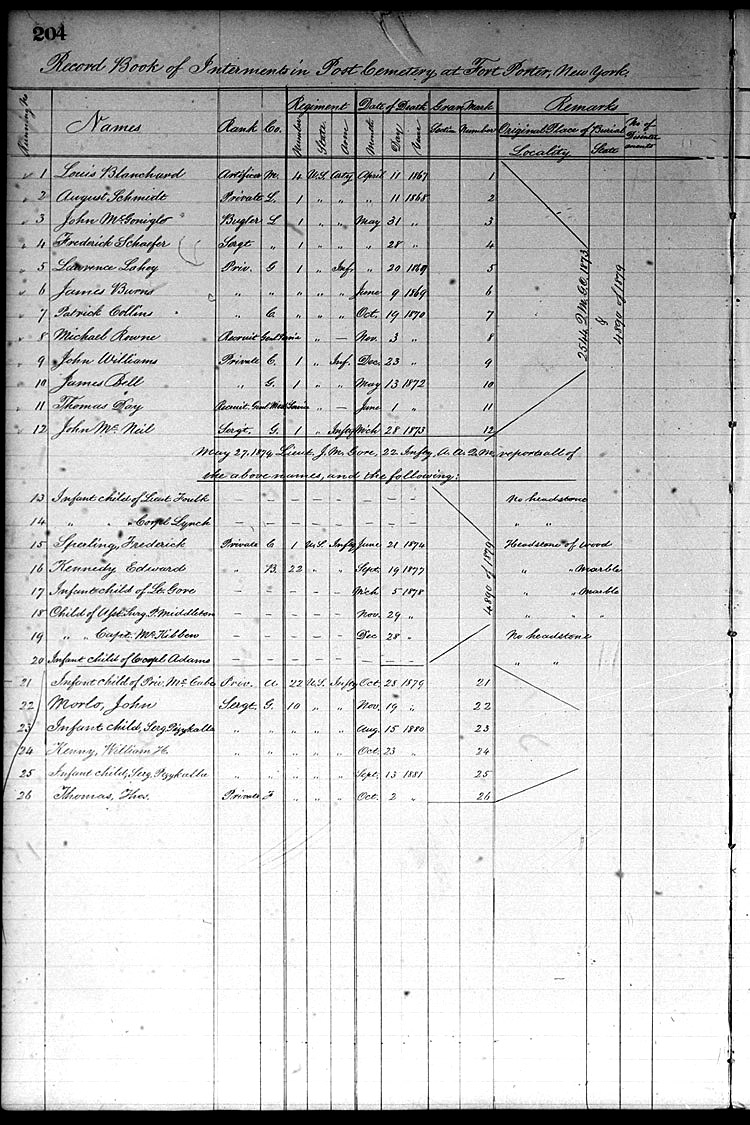 204
Record Book of Interments in Post Cemetery, at Fort Porter, New York.
Running No Names Rank Co. Regiment Date of Death Grave Mark Remarks
Number State Arm Month Day Year Section Number Original Place of Burial No of Disinterments
Locality State
1 Louis Blanchard Artificer M. 4 U.S. Arty April 11 1867 1
2 August Schmidt Private L. 1 " " " 11 1868 2
3 John McGonigle Bugler L 1 " " May 31 " 3
4 Frederick Schaefer Sergt. " 1 " " " 28 " 4
5 Lawrence Lahey Priv. G 1 " Inf. " 20 1869 5
6 James Burns " " " " " June 9 1869 6
7 Patrick Collins " C. " " " Oct. 19 1870 7
8 Michael Rowne Recruit Genl Service " — Nov. 3 " 8
9 John Williams Private C. 1 " Inf. Dec. 23 " 9
10 James Bell " G. 1 " " May 13 1872 10
11 Thomas Day Recruit Genl Service " — June 1 " 11
12 John Mc Neil Sergt. G. 1 " Infty Mch 28 1873 12
2544 Q.M.G.O. 1873
&
4890 of 1879
May 27, 1879, Lieut. J. M. Gore, 22 Infty, A. A. Q. M. reports all of
the above names, and the following:
13 Infant child of Lieut Foulk – – – – – – – – No headstone
14 " " " Corpl Lynch – – – – – – – – " "
15 Sperling, Frederick Private C 1 U.S. Infty June 21 1874 Headstone of wood
16 Kennedy Edward " B. 22 " " Sept. 19 1877 " " Marble
17 Infant child of Lt. Gore – – – – – Mch. 5 1878 " " Marble
18 Child of Asst. Surg. P. Middleton – – – – – Nov. 29 " " " "
19 " " Capt. McKibben – – – – – Dec 28 " No headstone
20 Infant child of Corpl Adams – – – – – – – – " "
4890 of 1879
21 Infant child of Priv. McCabe Priv. A. 22 U.S. Infty Oct. 25 1879 21
22 Morlo, John Sergt. G. 10 " " Nov. 19 " 22
23 Infant child, Serg. Pizykalla " " " " " Aug. 15 1880 23
24 Kenny, William H. " " " " " Oct. 23 " 24
25 Infant child, Serg. Pizykalla " " " " " Sept. 13 1881 25
26 Thomas, Thos. Private F " " " Oct. 2 " 26